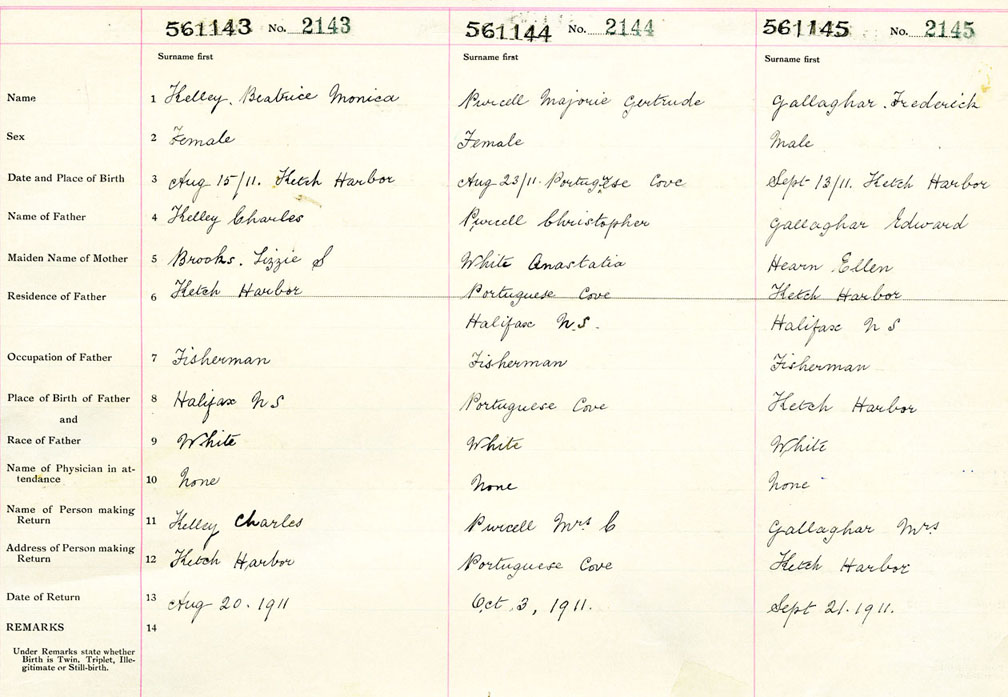 561143 No. 2143 561144 No. 2144 561145 No. 2145
Surname first Surname first Surname first
Name 1 Kelley. Beatrice Monica Purcell Majorie Gertrude Gallaghar. Frederick
Sex 2 Female Female Male
Date and Place of Birth 3 Aug 15/11. Ketch Harbor Aug 23/11. Portugese Cove Sept 13/11. Ketch Harbor
Name of Father 4 Kelley Charles Purcell Christopher Gallaghar Edward
Maiden Name of Mother 5 Brooks. Lizzie S White Anastatia Hearn Ellen
Residence of Father 6 Ketch Harbor Portuguese Cove Ketch Harbor
Halifax N.S. Halifax N S
Occupation of Father 7 Fisherman Fisherman Fisherman
Place of Birth of Father 8 Halifax N S Portuguese Cove Ketch Harbor
and
Race of Father 9 White White White
Name of Physician in at-
tendance 10 None None None
Name of Person making
Return 11 Kelley Charles Purcell Mrs C Gallaghar Mrs
Address of Person making
Return 12 Ketch Harbor Portuguese Cove Ketch Harbor
Date of Return 13 Aug 20. 1911 Oct. 3, 1911. Sept 21. 1911.
REMARKS 14
Under Remarks state whether
Birth is Twin, Triplet, Ille-
gitimate or Still-birth.